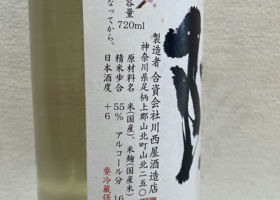 製造者 合資会社川西屋酒造店
神奈川県足柄上郡山北町山北二五〇
原材料名 米(国産)、米麹(国産米)
精米歩合 55% アルコール分 16
日本酒度 +6
要冷蔵
容量 720ml
なってから。